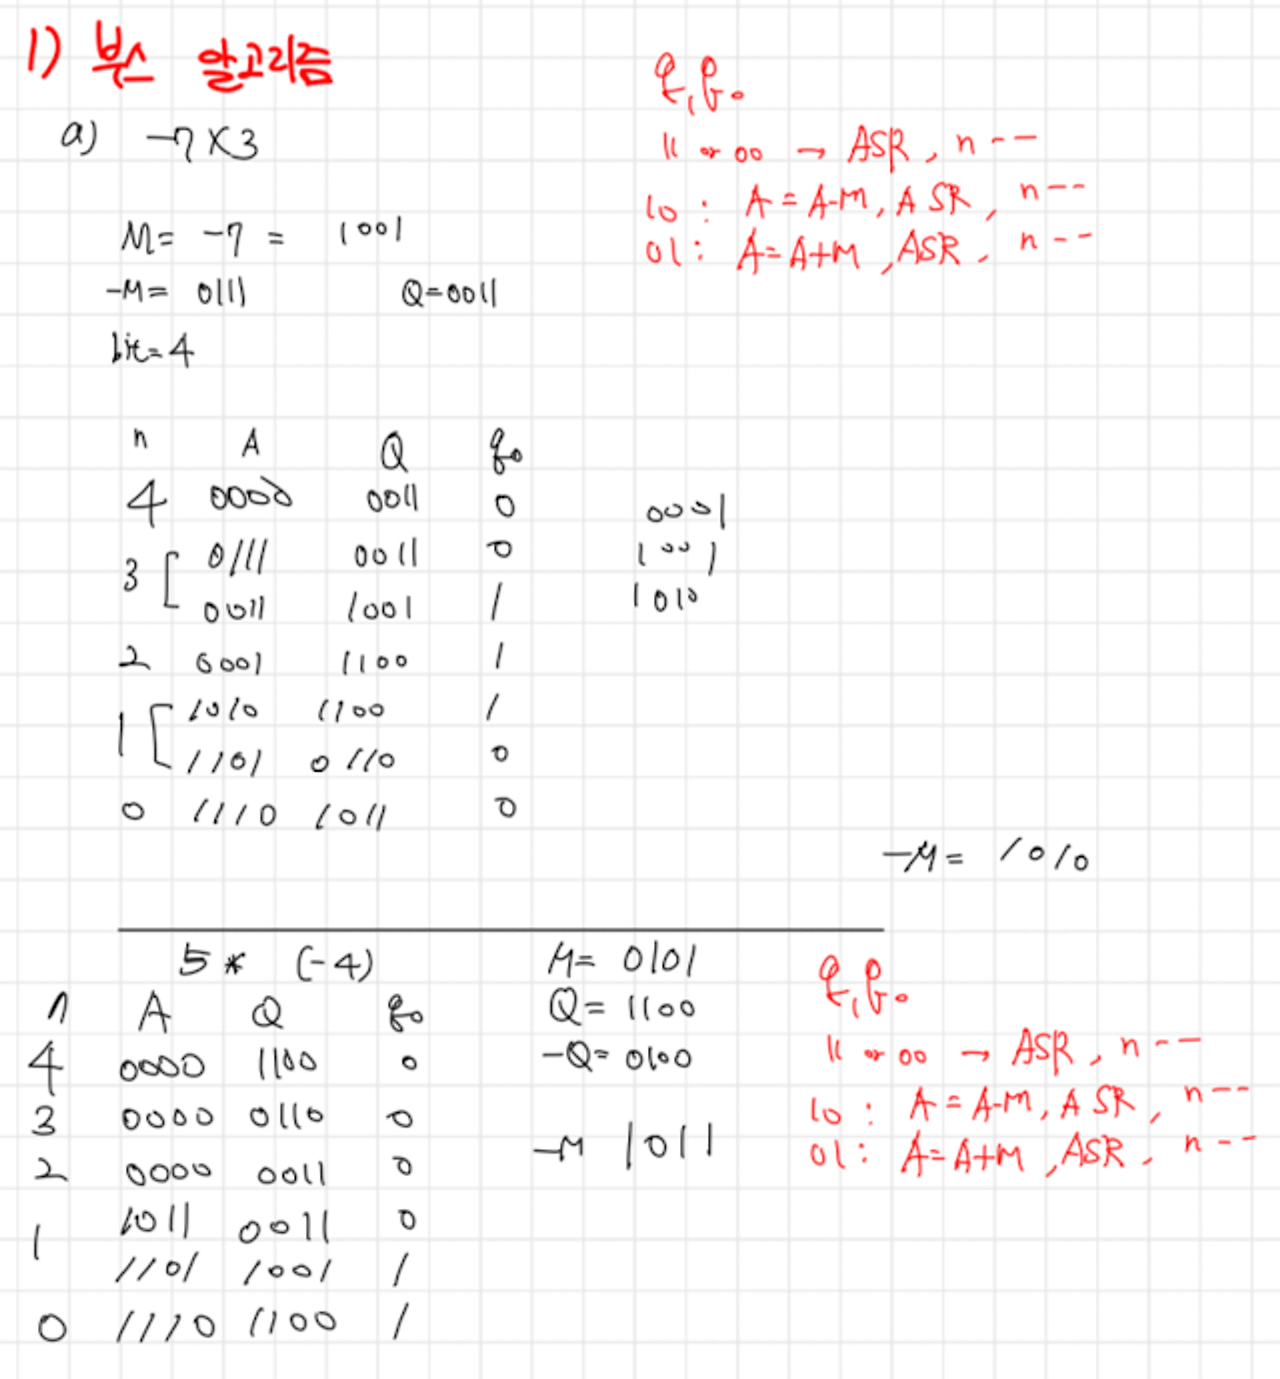 1) 부스 알고리즘
a) -7×3
q₁q₀
11 or 00 → ASR, n--
10 : A=A-M, ASR, n--
01 : A=A+M, ASR, n--
M= -7 = 1001
-M= 0111 Q=0011
bit=4
n A Q q₀
4 0000 0011 0
3 [ 0111 0011 0
0011 1001 1
2 0001 1100 1
1 [ 1010 1100 1
1101 0110 0
0 1110 1011 0
0001
1001
1010
-M= 1010
5 * (-4)
n A Q q₀
4 0000 1100 0
3 0000 0110 0
2 0000 0011 0
1 1011 0011 0
1101 1001 1
0 1110 1100 1
M= 0101
Q= 1100
-Q= 0100
-M 1011
q₁q₀
11 or 00 → ASR, n--
10 : A=A-M, ASR, n--
01 : A=A+M, ASR, n--